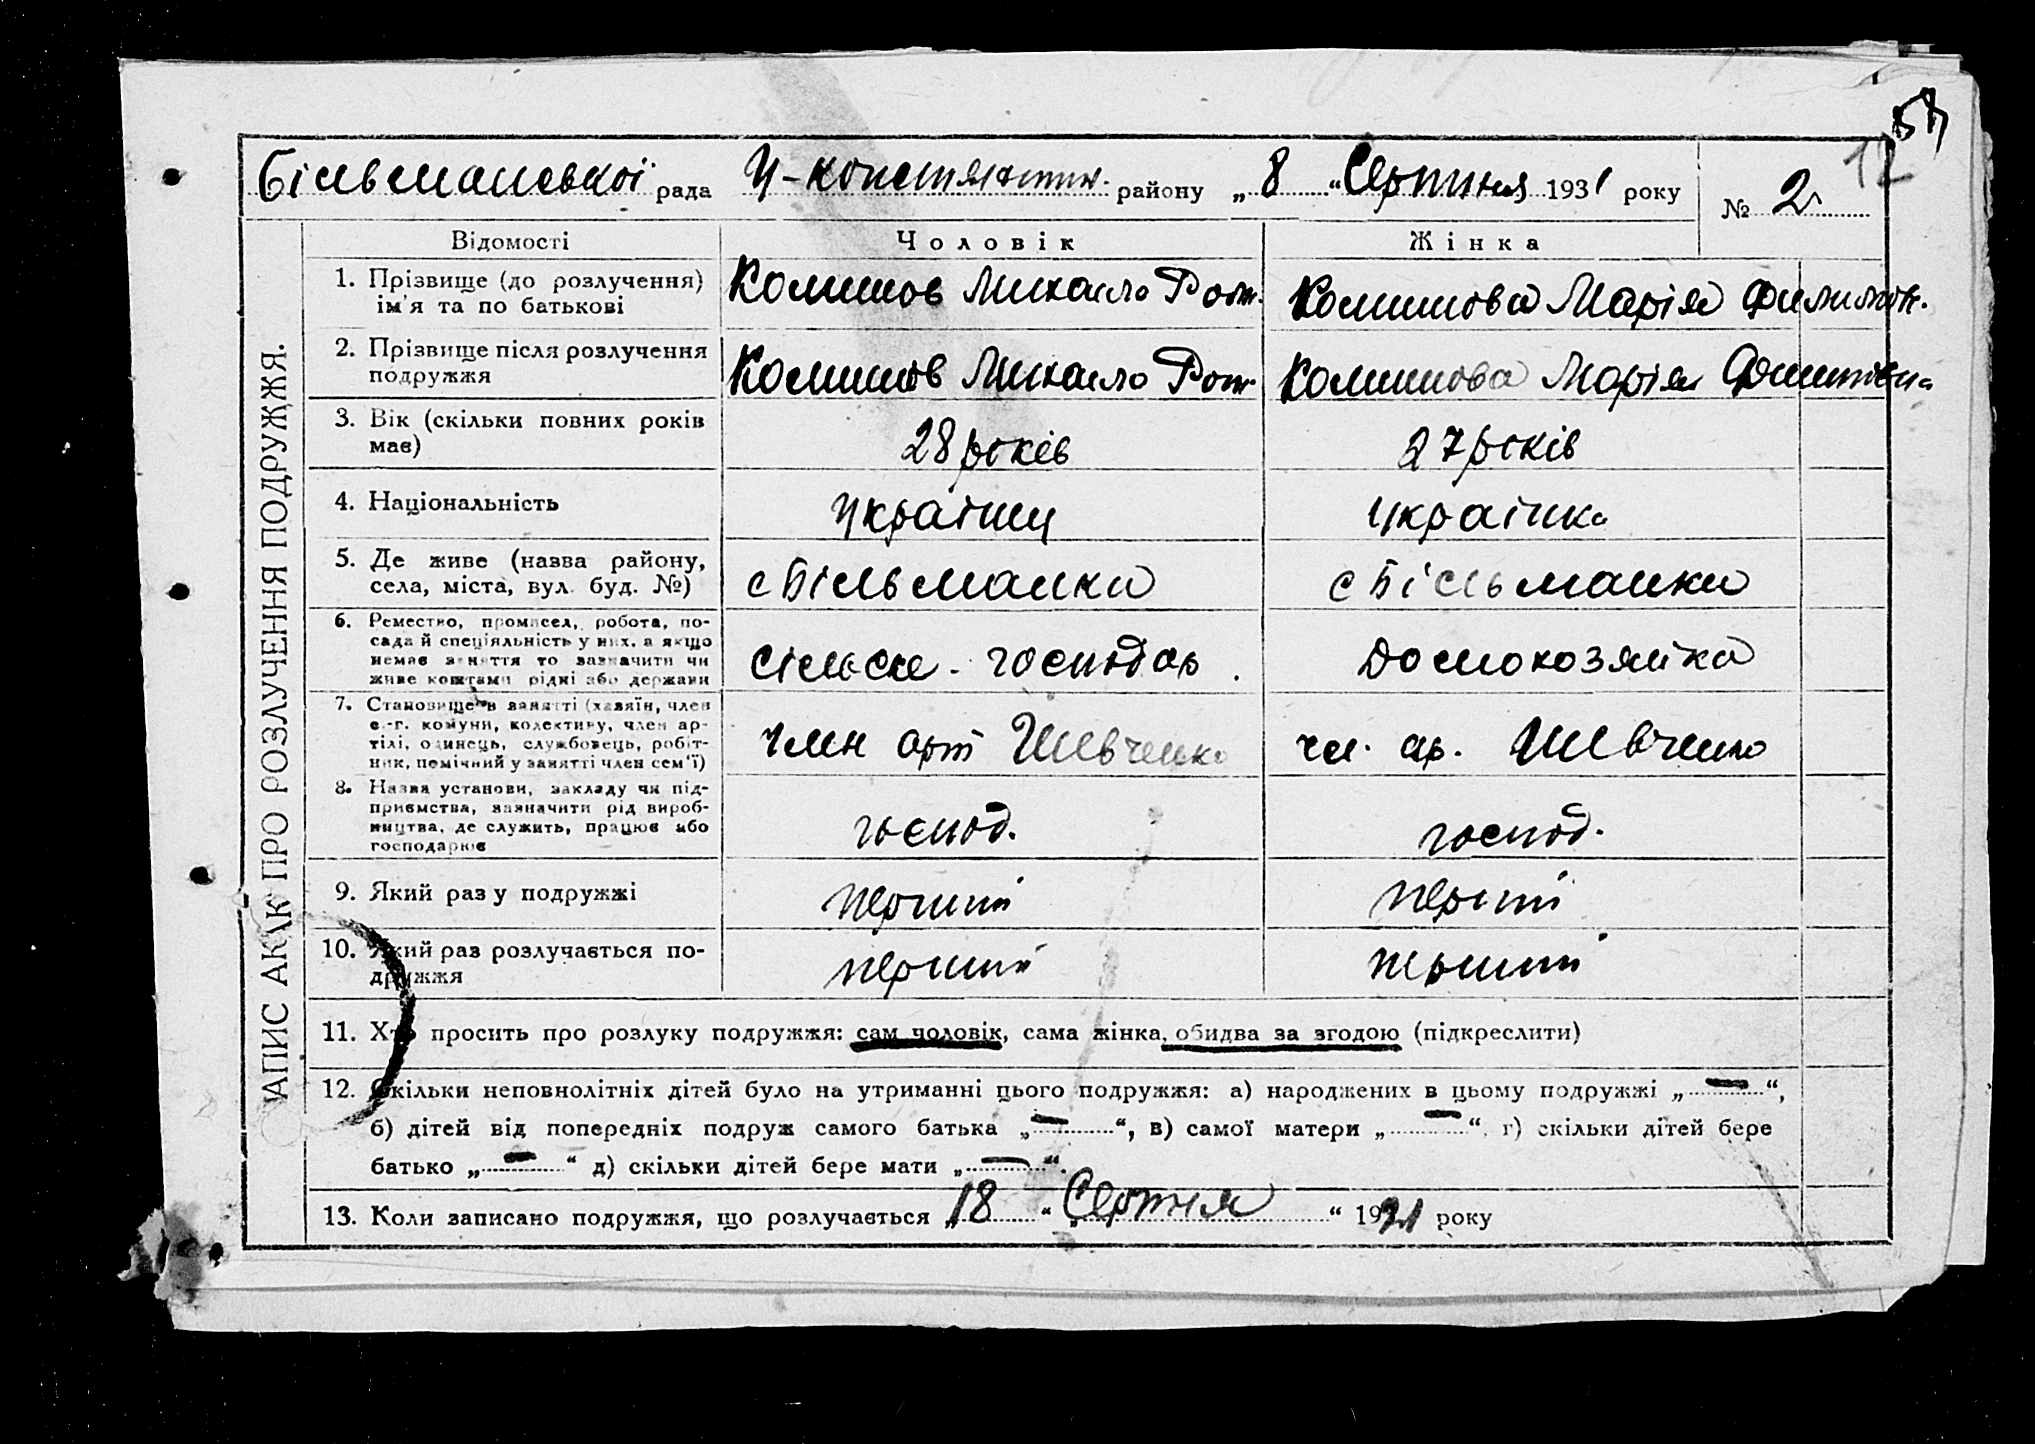 58
12
Більманської рада Ц-констянтин. району „8“ Серпня 1931 року № 2
ЗАПИС АКТІВ ПРО РОЗЛУЧЕННЯ ПОДРУЖЖЯ.
Відомості Чоловік Жінка
1. Прізвище (до розлучення) ім'я та по батькові
Михаило
Марія
2. Прізвище після розлучення подружжя
Михаило
Марія
3. Вік (скільки повних років має)
28 років
27 років
4. Національність
українц
українка
5. Де живе (назва району, села, міста, вул. буд. №)
с Більманки
с Більманки
6. Ремество, промисел, робота, посада й спеціяльність у них, а якщо немає заняття то зазначити чи живе коштами рідні або держави
сільськ - господар.
домохозяйка
7. Становище в занятті (хазяїн, член с.-г. комуни, колективу, член артілі, одинець, службовець, робітник, помічний у занятті член сем'ї)
член арт Шевченко
чл. ар. Шевченко
8. Назва установи, закладу чи підприємства, зазначити рід виробництва, де служить, працює або господарює
господ.
господ.
9. Який раз у подружжі
перший
перший
10. Який раз розлучається подружжя
перший
перший
11. Хто просить про розлуку подружжя: сам чоловік, сама жінка, обидва за згодою (підкреслити)
12. Скільки неповнолітніх дітей було на утриманні цього подружжя: а) народжених в цьому подружжі „—“,
б) дітей від попередніх подруж самого батька „—“, в) самої матери „—“, г) скільки дітей бере
батько „—“ д) скільки дітей бере мати „—“.
13. Коли записано подружжя, що розлучається „18“ „Серпня“ 19 року